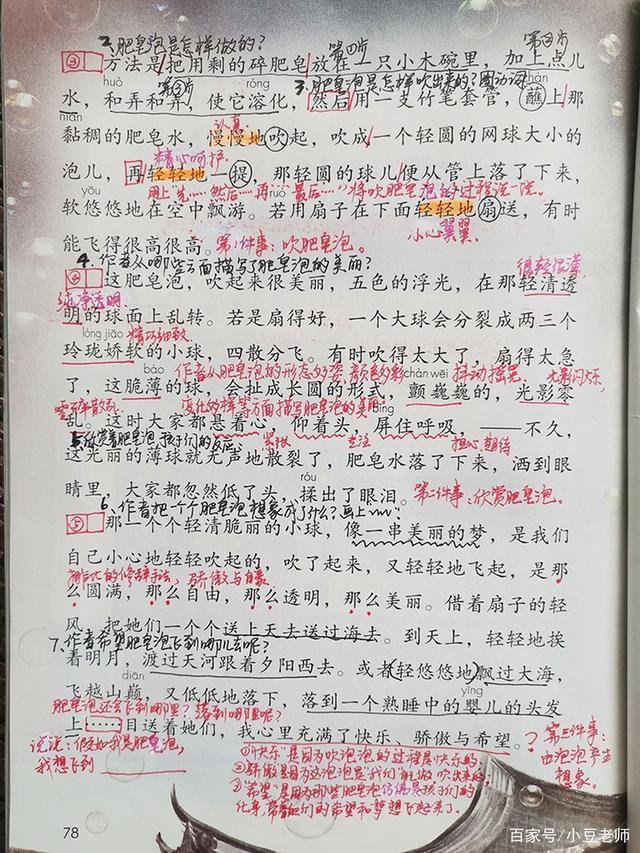 2、肥皂泡是怎样做的?
第①步
第③步
③方法是把用剩的碎肥皂放在一只小木碗里,加上点儿
huò
第②步
róng
3、肥皂泡是怎样吹出来的?圈动词
zhàn
水,和弄和弄,使它溶化,然后用一支竹笔套管,蘸上那
nián
认真
黏稠的肥皂水,慢慢地吹起,吹成一个轻圆的网球大小的
精心呵护
泡儿,再轻轻地一提,那轻圆的球儿便从管上落了下来,
yōu
用上“先……然后……再……最后……”将吹肥皂泡的过程说一说。
ruò
软悠悠地在空中飘游。若用扇子在下面轻轻地扇送,有时
小心翼翼
能飞得很高很高。
第1件事:吹肥皂泡。
4、作者从哪些方面描写了肥皂泡的美丽?
很轻很薄
④这肥皂泡,吹起来很美丽,五色的浮光,在那轻清透
纯净透明
明的球面上乱转。若是扇得好,一个大球会分裂成两三个
lóng jiāo
精巧细致
玲珑娇软的小球,四散分飞。有时吹得太大了,扇得太急
báo
作者从肥皂泡的形态的姿、颜色的彩
chàn wēi
抖动摇晃
光影闪烁,
了,这脆薄的球,会扯成长圆的形式,颤巍巍的,光影零
零碎散乱
变化的样等方面描写肥皂泡的美丽
bǐng
乱。这时大家都悬着心,仰着头,屏住呼吸,——不久,
5、欣赏着肥皂泡,孩子们的反应
紧张
专注
担心、期待
这光丽的薄球就无声地散裂了,肥皂水落了下来,洒到眼
róu
睛里,大家都忽然低了头,揉出了眼泪。
第二件事:欣赏肥皂泡。
6、作者把一个个肥皂泡想象成了什么?画上
⑤那一个个轻清脆丽的小球,像一串美丽的梦,是我们
自己小心地轻轻吹起的,吹了起来,又轻轻地飞起,是那
排比的修辞手法,骄傲与自豪
么圆满,那么自由,那么透明,那么美丽。借着扇子的轻
风,把她们一个个送上天去送过海去。到天上,轻轻地挨
7、作者希望肥皂泡飞到哪儿去呢?
着明月,渡过天河跟着夕阳西去。或者轻悠悠地飘过大海,
diān
yīng
飞越山巅,又低低地落下,落到一个熟睡中的婴儿的头发
肥皂泡还会飞到哪里?落到哪里呢?
上……目送着她们,我心里充满了快乐、骄傲与希望。
说说:假如我是肥皂泡,
我想飞到
①“快乐”是因为吹泡泡的过程是快乐的。
②“骄傲”是因为这泡泡是“我们”能做、吹出来的。
③“希望”是因为那些肥皂泡仿佛是孩子们的
化身,带着他们的希望和梦想飞起来了。
第三件事:
由泡泡产生
想象。
78
百家号/小豆老师